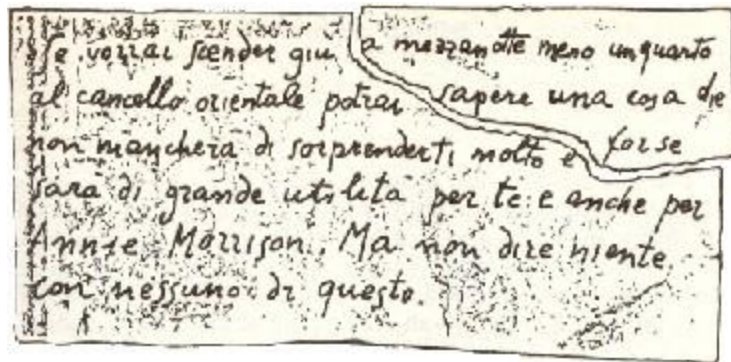 Se vorrai scender giù a mezzanotte meno un quarto
al cancello orientale potrai sapere una cosa che
non mancherà di sorprenderti molto e forse
sarà di grande utilità per te e anche per
Annie Morrison. Ma non dire niente
con nessuno di questo.